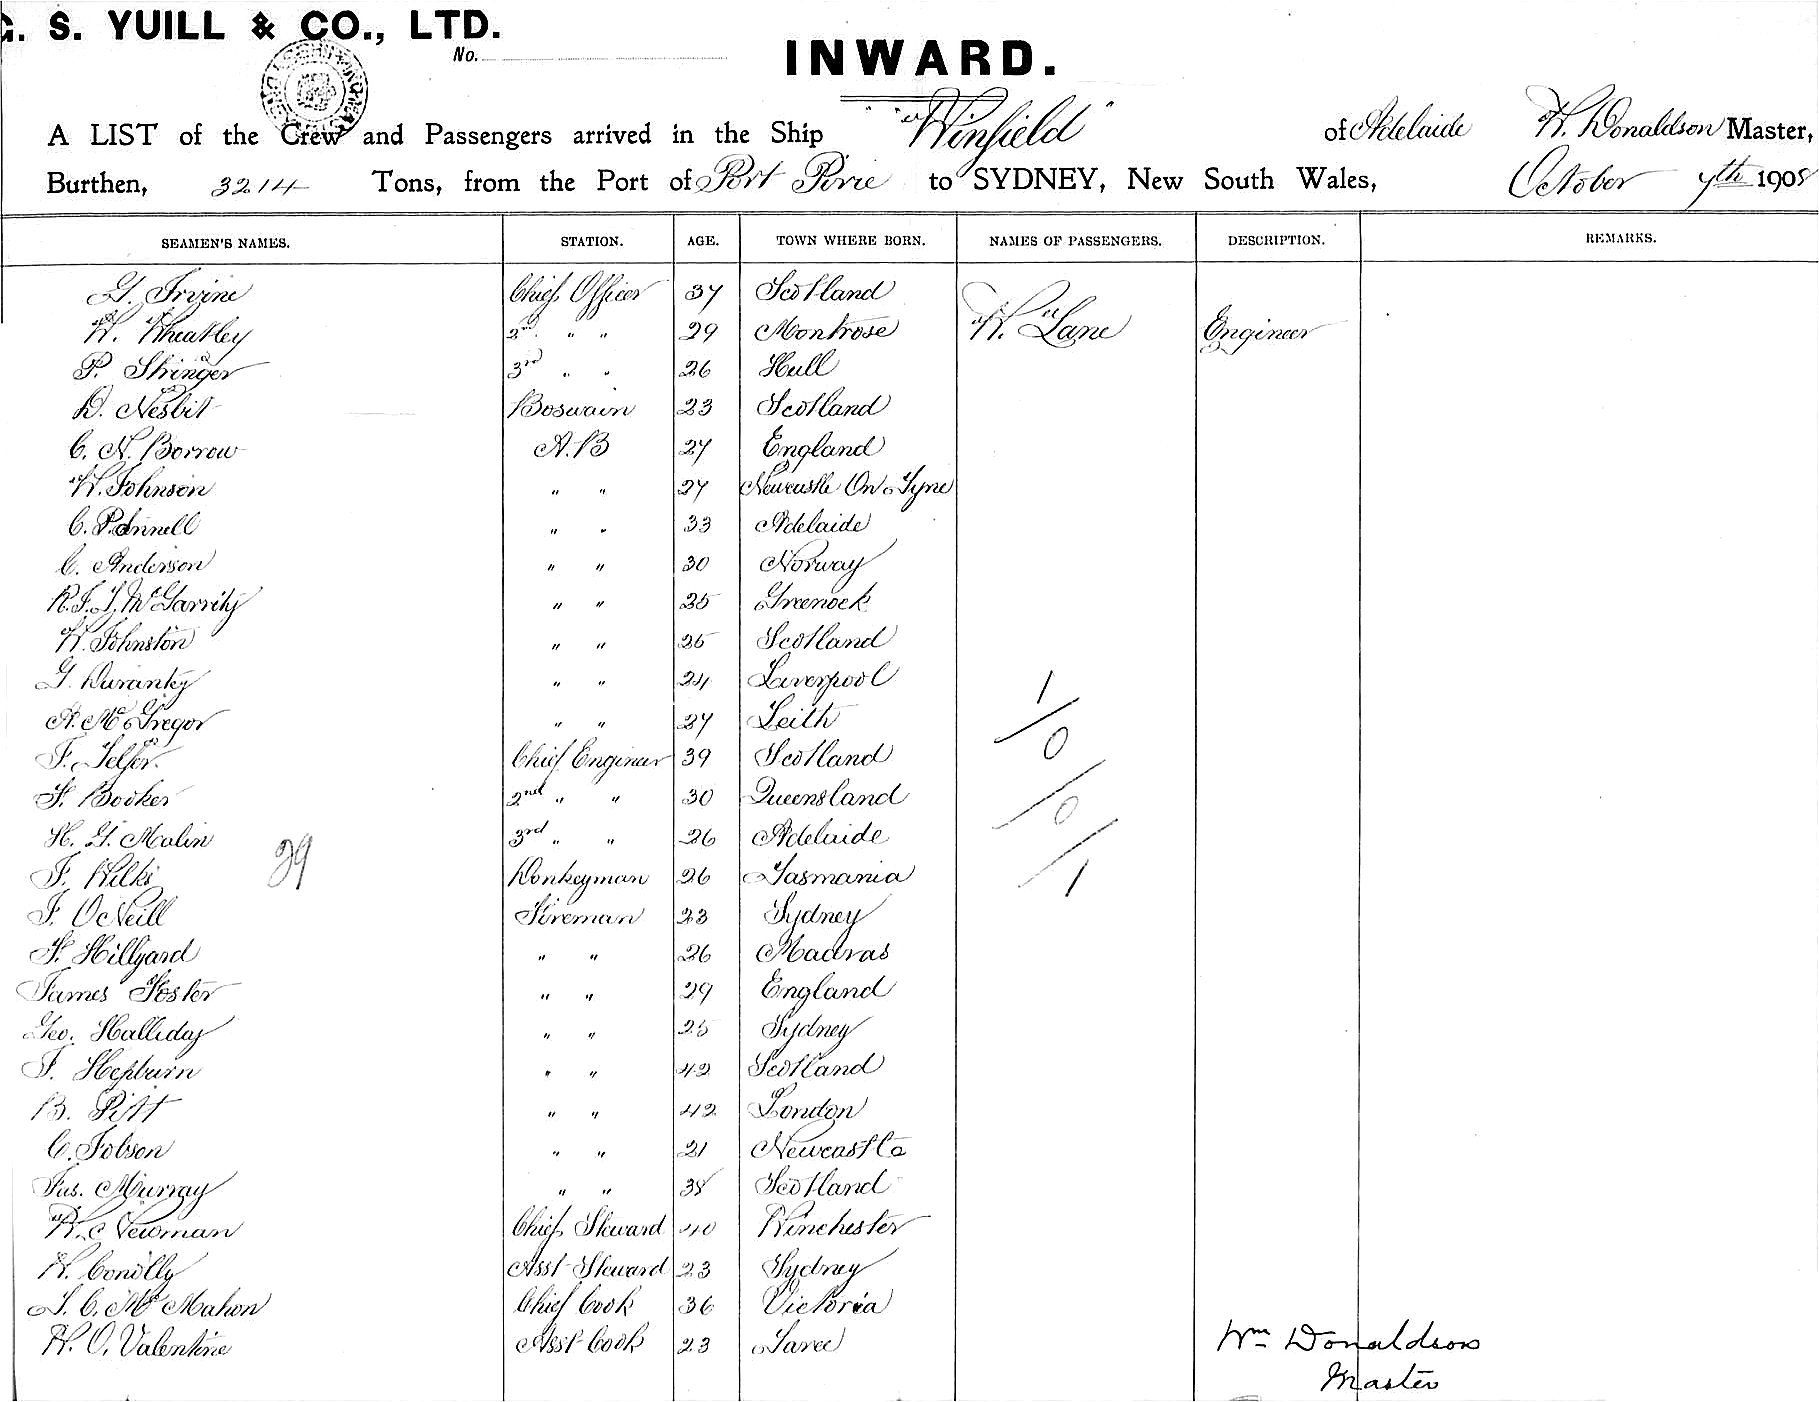 G. S. YUILL & CO., LTD.
No.
INWARD.
A LIST of the Crew and Passengers arrived in the Ship "Winfield" of Adelaide W. Donaldson Master,
Burthen, 3214 Tons, from the Port of Port Pirie to SYDNEY, New South Wales, October 7th 1908
SEAMEN'S NAMES. STATION. AGE. TOWN WHERE BORN. NAMES OF PASSENGERS. DESCRIPTION. REMARKS.
G. Irvine Chief Officer 37 Scotland
W. Wheatley 2nd " " 29 Montrose W. Lane Engineer
P. Stringer 3rd " " 26 Hull
D. Nesbit Boswain 23 Scotland
C. N. Borrow A.B 27 England
W. Johnson " " 27 Newcastle On Tyne
C. Pinnell " " 33 Adelaide
C. Anderson " " 30 Norway
R. J. J. McGarrity " " 25 Greenock
W. Johnston " " 25 Scotland
G. Duranty " " 24 Liverpool
A. McGregor " " 27 Leith
J. Telfer. Chief Engineer 39 Scotland
F. Booker 2nd " " 30 Queensland
H. G. Malin 3rd " " 26 Adelaide
J. Wilki Donkeyman 26 Tasmania
J. O'Neill Fireman 23 Sydney
F. Hillyard " " 26 Madras
James Foster " " 29 England
Geo. Halliday " " 25 Sydney
J. Hepburn " " 42 Scotland
B. Pitt " " 42 London
C. Jobson " " 21 Newcastle
Jas. Murray " " 38 Scotland
W. Newman Chief Steward 40 Winchester
W. Conolly Asst Steward 23 Sydney
J. C. McMahon Chief Cook 36 Victoria
W. O. Valentine Asst Cook 23 Taree
39
1/0/0/1
Wm Donaldson
Master